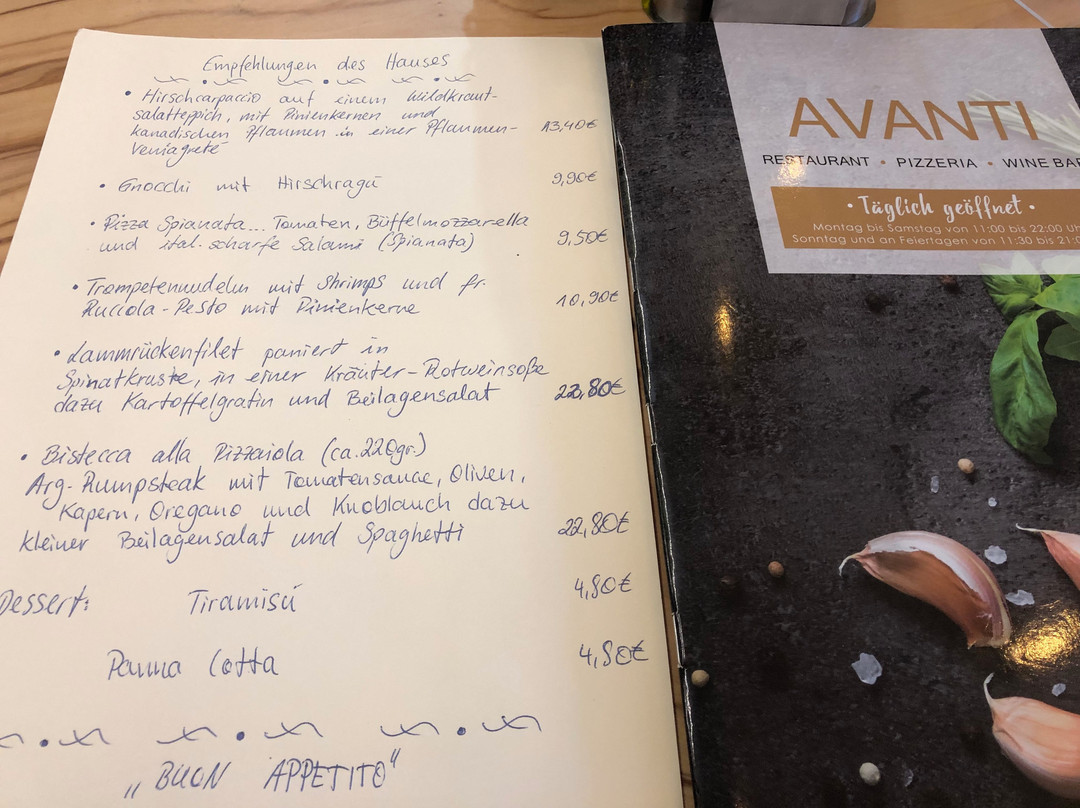 Empfehlungen des Hauses
• Hirschcarpaccio auf einem Wildkraut-
salatteppich, mit Pinienkernen und
kanadischen Pflaumen in einer Pflaumen- 13,40€
Veniagrete
• Gnocchi mit Hirschragú 9,90€
• Pizza Spianata... Tomaten, Büffelmozzarella
und ital. scharfe Salami (Spianata) 9,50€
• Trompetennudeln mit Shrimps und fr.
Ruccola-Pesto mit Pinienkerne 10,90€
• Lammrückenfilet paniert in
Spinatkruste, in einer Kräuter-Rotweinsoße
dazu Kartoffelgratin und Beilagensalat 22,80€
• Bistecca alla Pizzaiola (ca. 220gr.)
Arg. Rumpsteak mit Tomatensauce, Oliven,
Kapern, Oregano und Knoblauch dazu
kleiner Beilagensalat und Spaghetti 22,80€
Dessert: Tiramisú 4,80€
Panna Cotta 4,80€
„BUON APPETITO"
AVANTI
RESTAURANT • PIZZERIA • WINE BAR
• Täglich geöffnet •
Montag bis Samstag von 11:00 bis 22:00 Uh
Sonntag und an Feiertagen von 11:30 bis 21:0